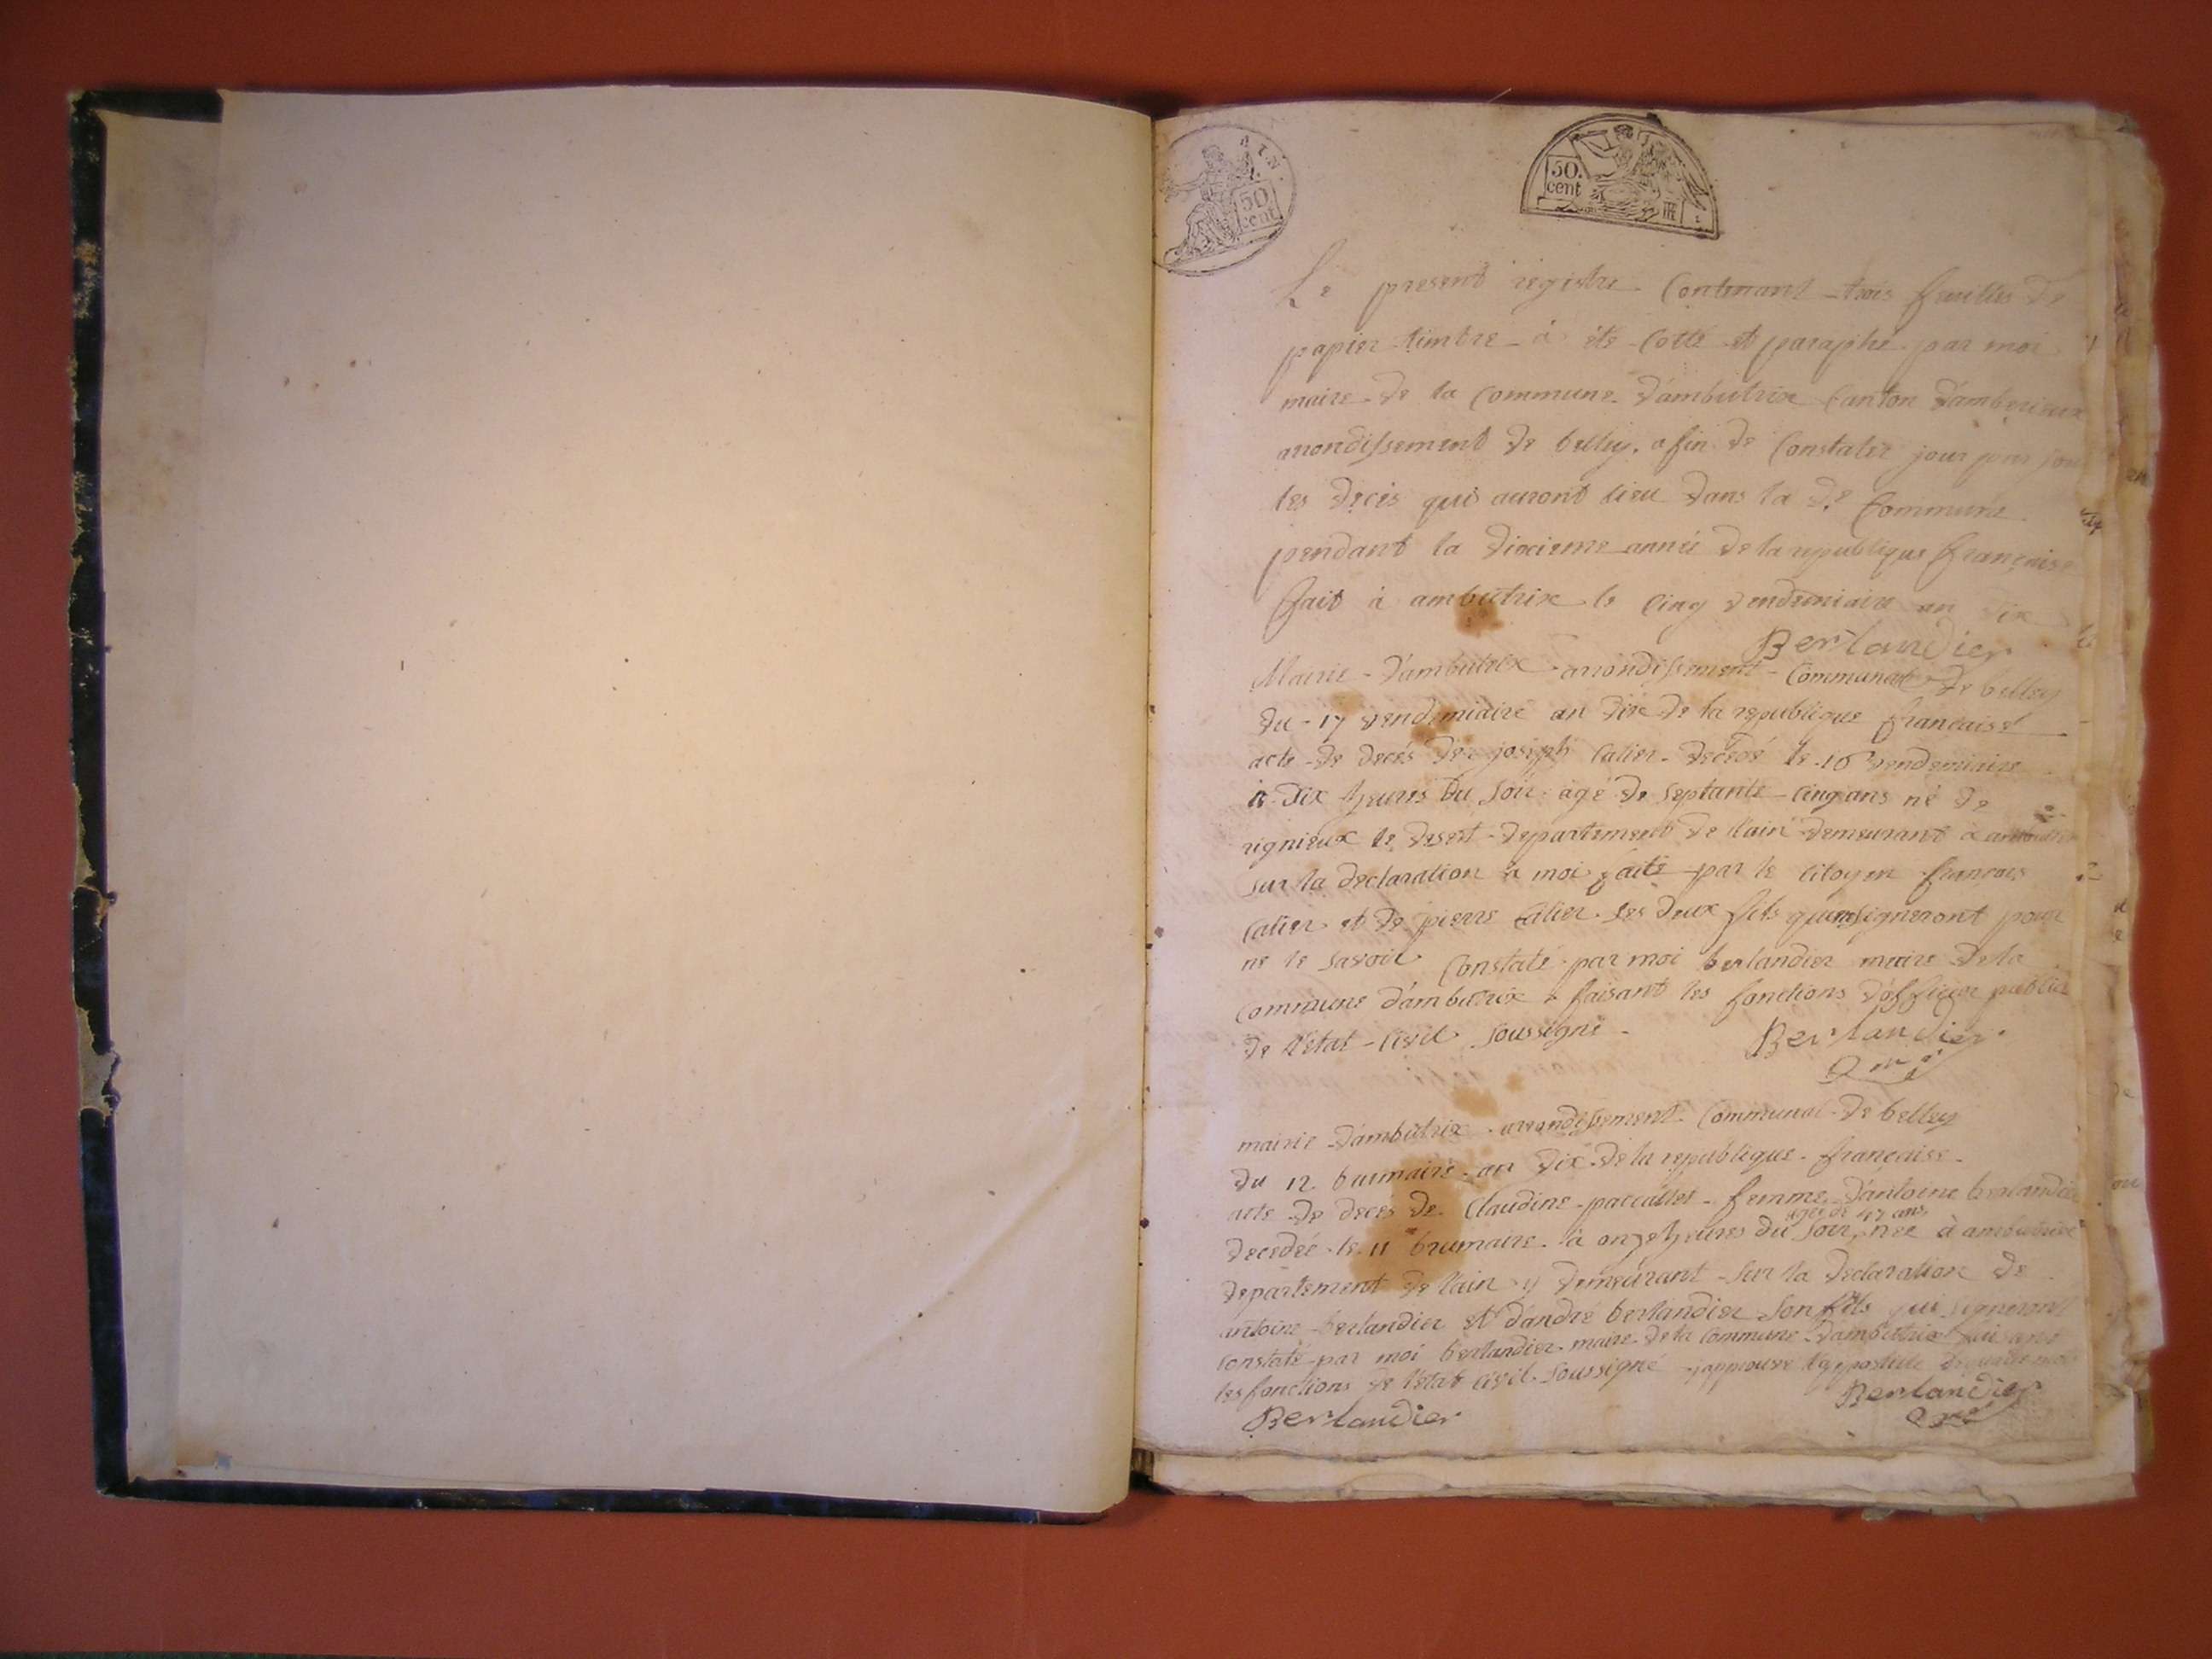 AIN.
50
cent
50.
cent
Le present registre Contenant trois feuilles de
papier timbre à été Cotté et paraphé par moi
maire de la Commune d'ambutrix Canton d'amberieux
arrondissement de belley. afin de Constater jour par jour
les décès qui auront lieu dans la de Commune
pendant la dixieme année de la republique française
fait à ambutrix le Cinq vendemiaire an dix
Berlandier
Mairie d'ambutrix arrondissement Communal de belley
du 17 vendemiaire an dix de la republique francaise
acte de decés de joseph Catier decedé le 16 vendemiaire
à dix heures du soir agé de septante cinq ans né de
rignieux le desert departement de lain demeurant à ambutrix
sur la declaration à moi faite par le Citoyen francois
Catier et de pierre Catier ses deux fils qui ne signeront pour
ne le savoir Constaté par moi berlandier maire de la
Commune d'ambutrix faisant les fonctions d'officier public
de l'etat Civil soussigné
Berlandier
mairie d'ambutrix arrondissement Communal de belley
du 12 brumaire an dix de la republique française
acte de deces de Claudine paccallet femme d'antoine berlandier
agée de 47 ans
decedée le 11 brumaire à onze heures du soir, née à ambutrix
departement de lain y demeurant sur la declaration de
antoine berlandier et d'andré berlandier son fils qui signeront
Constaté par moi berlandier maire de la Commune d'ambutrix faisant
les fonctions de l'etat Civil soussigné japprouve
Berlandier
Berlandier